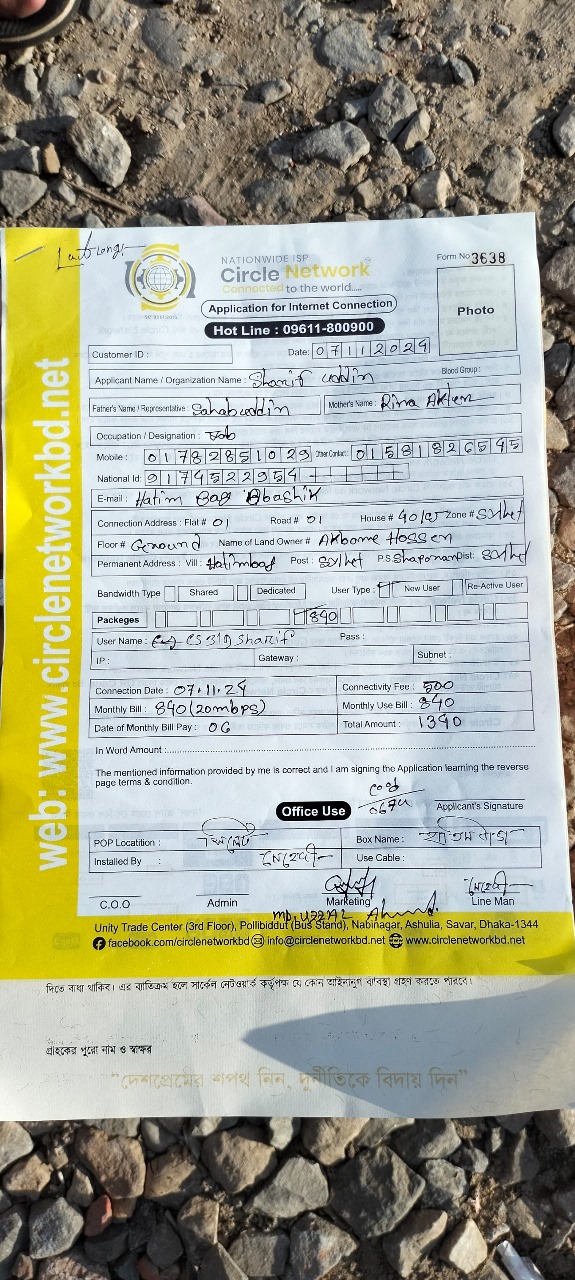 NATIONWIDE ISP
Circle Network
Connected to the world.....
Form No 3638
Application for Internet Connection
Hot Line : 09611-800900
Photo
web: www.circlenetworkbd.net
Customer ID :
Date: 07112024
Applicant Name / Organization Name : Sharif uddin
Blood Group :
Father's Name / Representative : Sahabuddin
Mother's Name : Rina Akter
Occupation / Designation : Job
Mobile : 01782851029 Other Contact: 01581826545
National Id: 9174522954
E-mail : Hatim Bag Abashik
Connection Address : Flat # 01 Road # 01 House # 40/ Zone # Sylhet
Floor # Geround Name of Land Owner # Akbome Hossen
Permanent Address : Vill : Hatimbag Post : Sylhet P.S: Shaporan Dist: Sylhet
Bandwidth Type Shared Dedicated User Type : New User Re-Active User
Packeges 840
User Name : CS31D Sharif Pass :
IP : Gateway : Subnet :
Connection Date : 07.11.24 Connectivity Fee : 500
Monthly Bill : 840 (20mbps) Monthly Use Bill : 840
Date of Monthly Bill Pay : 06 Total Amount : 1340
In Word Amount :
The mentioned information provided by me is correct and I am signing the Application learning the reverse
page terms & condition.
Office Use
Applicant's Signature
POP Locatition :
Box Name : হাতিমবাগ
Installed By : মেহেদী
Use Cable :
C.O.O Admin Marketing Line Man
মেহেদী
MD. UZZAL Ahmed.
Unity Trade Center (3rd Floor), Pollibiddut (Bus Stand), Nabinagar, Ashulia, Savar, Dhaka-1344
facebook.com/circlenetworkbd info@circlenetworkbd.net www.circlenetworkbd.net
দিতে বাধ্য থাকিব। এর ব্যতিক্রম হলে সার্কেল নেটওয়ার্ক কর্তৃপক্ষ যে কোন আইনানুগ ব্যবস্থা গ্রহণ করতে পারবে।
গ্রাহকের পুরো নাম ও স্বাক্ষর
"দেশপ্রেমের শপথ নিন, দুর্নীতিকে বিদায় দিন"